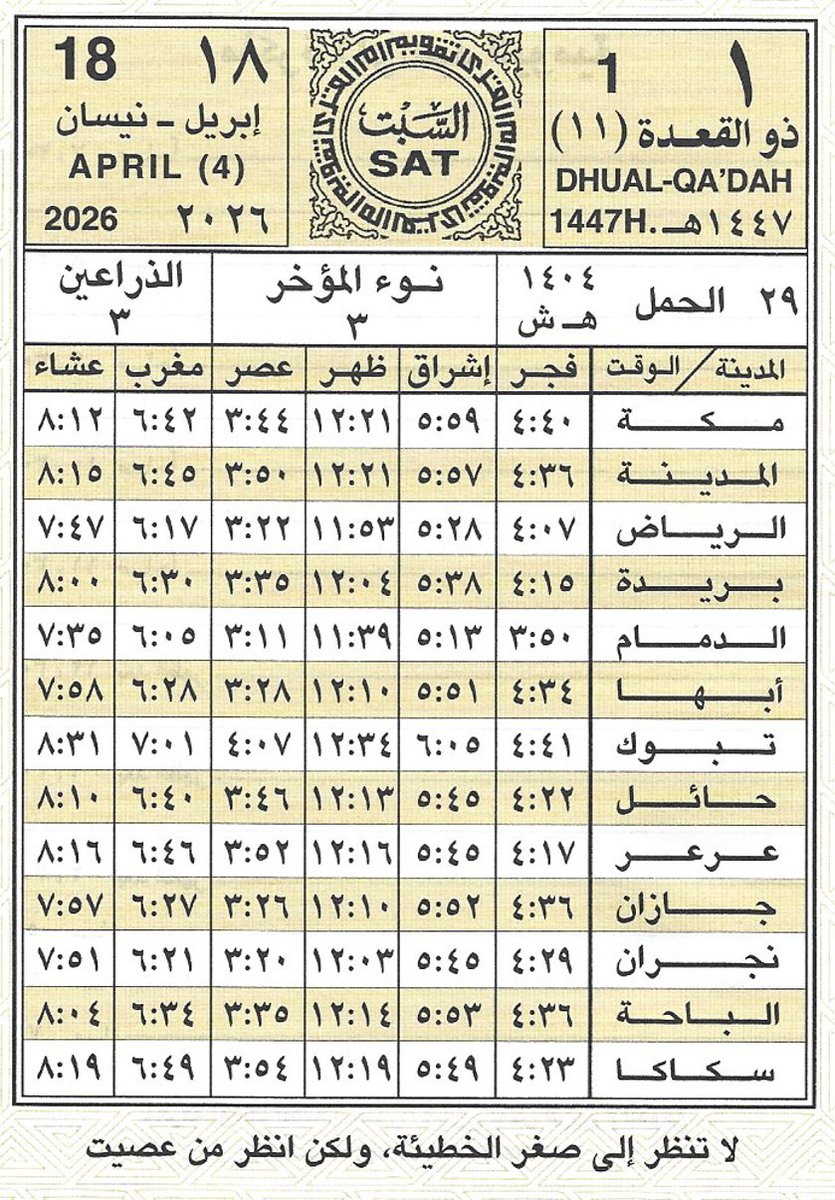 ١ 1
ذو القعدة (١١)
DHUAL-QA'DAH
1447H. ١٤٤٧هـ
السَّبْت
SAT
18 ١٨
إبريل - نيسان
APRIL (4)
2026 ٢٠٢٦
٢٩ الحمل ١٤٠٤ هـ ش
نوء المؤخر ٣
الذراعين ٣
المدينة / الوقت فجر إشراق ظهر عصر مغرب عشاء
مكة ٤:٤٠ ٥:٥٩ ١٢:٢١ ٣:٤٤ ٦:٤٢ ٨:١٢
المدينة ٤:٣٦ ٥:٥٧ ١٢:٢١ ٣:٥٠ ٦:٤٥ ٨:١٥
الرياض ٤:٠٧ ٥:٢٨ ١١:٥٣ ٣:٢٢ ٦:١٧ ٧:٤٧
بريدة ٤:١٥ ٥:٣٨ ١٢:٠٤ ٣:٣٥ ٦:٣٠ ٨:٠٠
الدمام ٣:٥٠ ٥:١٣ ١١:٣٩ ٣:١١ ٦:٠٥ ٧:٣٥
أبها ٤:٣٤ ٥:٥١ ١٢:١٠ ٣:٢٨ ٦:٢٨ ٧:٥٨
تبوك ٤:٤١ ٦:٠٥ ١٢:٣٤ ٤:٠٧ ٧:٠١ ٨:٣١
حائل ٤:٢٢ ٥:٤٥ ١٢:١٣ ٣:٤٦ ٦:٤٠ ٨:١٠
عرعر ٤:١٧ ٥:٤٥ ١٢:١٦ ٣:٥٢ ٦:٤٦ ٨:١٦
جازان ٤:٣٦ ٥:٥٢ ١٢:١٠ ٣:٢٦ ٦:٢٧ ٧:٥٧
نجران ٤:٢٩ ٥:٤٥ ١٢:٠٣ ٣:٢٠ ٦:٢١ ٧:٥١
الباحة ٤:٣٦ ٥:٥٣ ١٢:١٤ ٣:٣٥ ٦:٣٤ ٨:٠٤
سكاكا ٤:٢٣ ٥:٤٩ ١٢:١٩ ٣:٥٤ ٦:٤٩ ٨:١٩
لا تنظر إلى صغر الخطيئة، ولكن انظر من عصيت